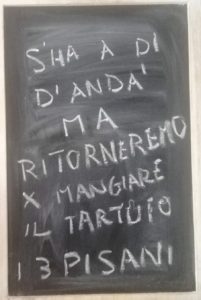 S'HA A DÌ
D'ANDA'
MA
RITORNEREMO
X MANGIARE
IL TARTUFO
I 3 PISANI